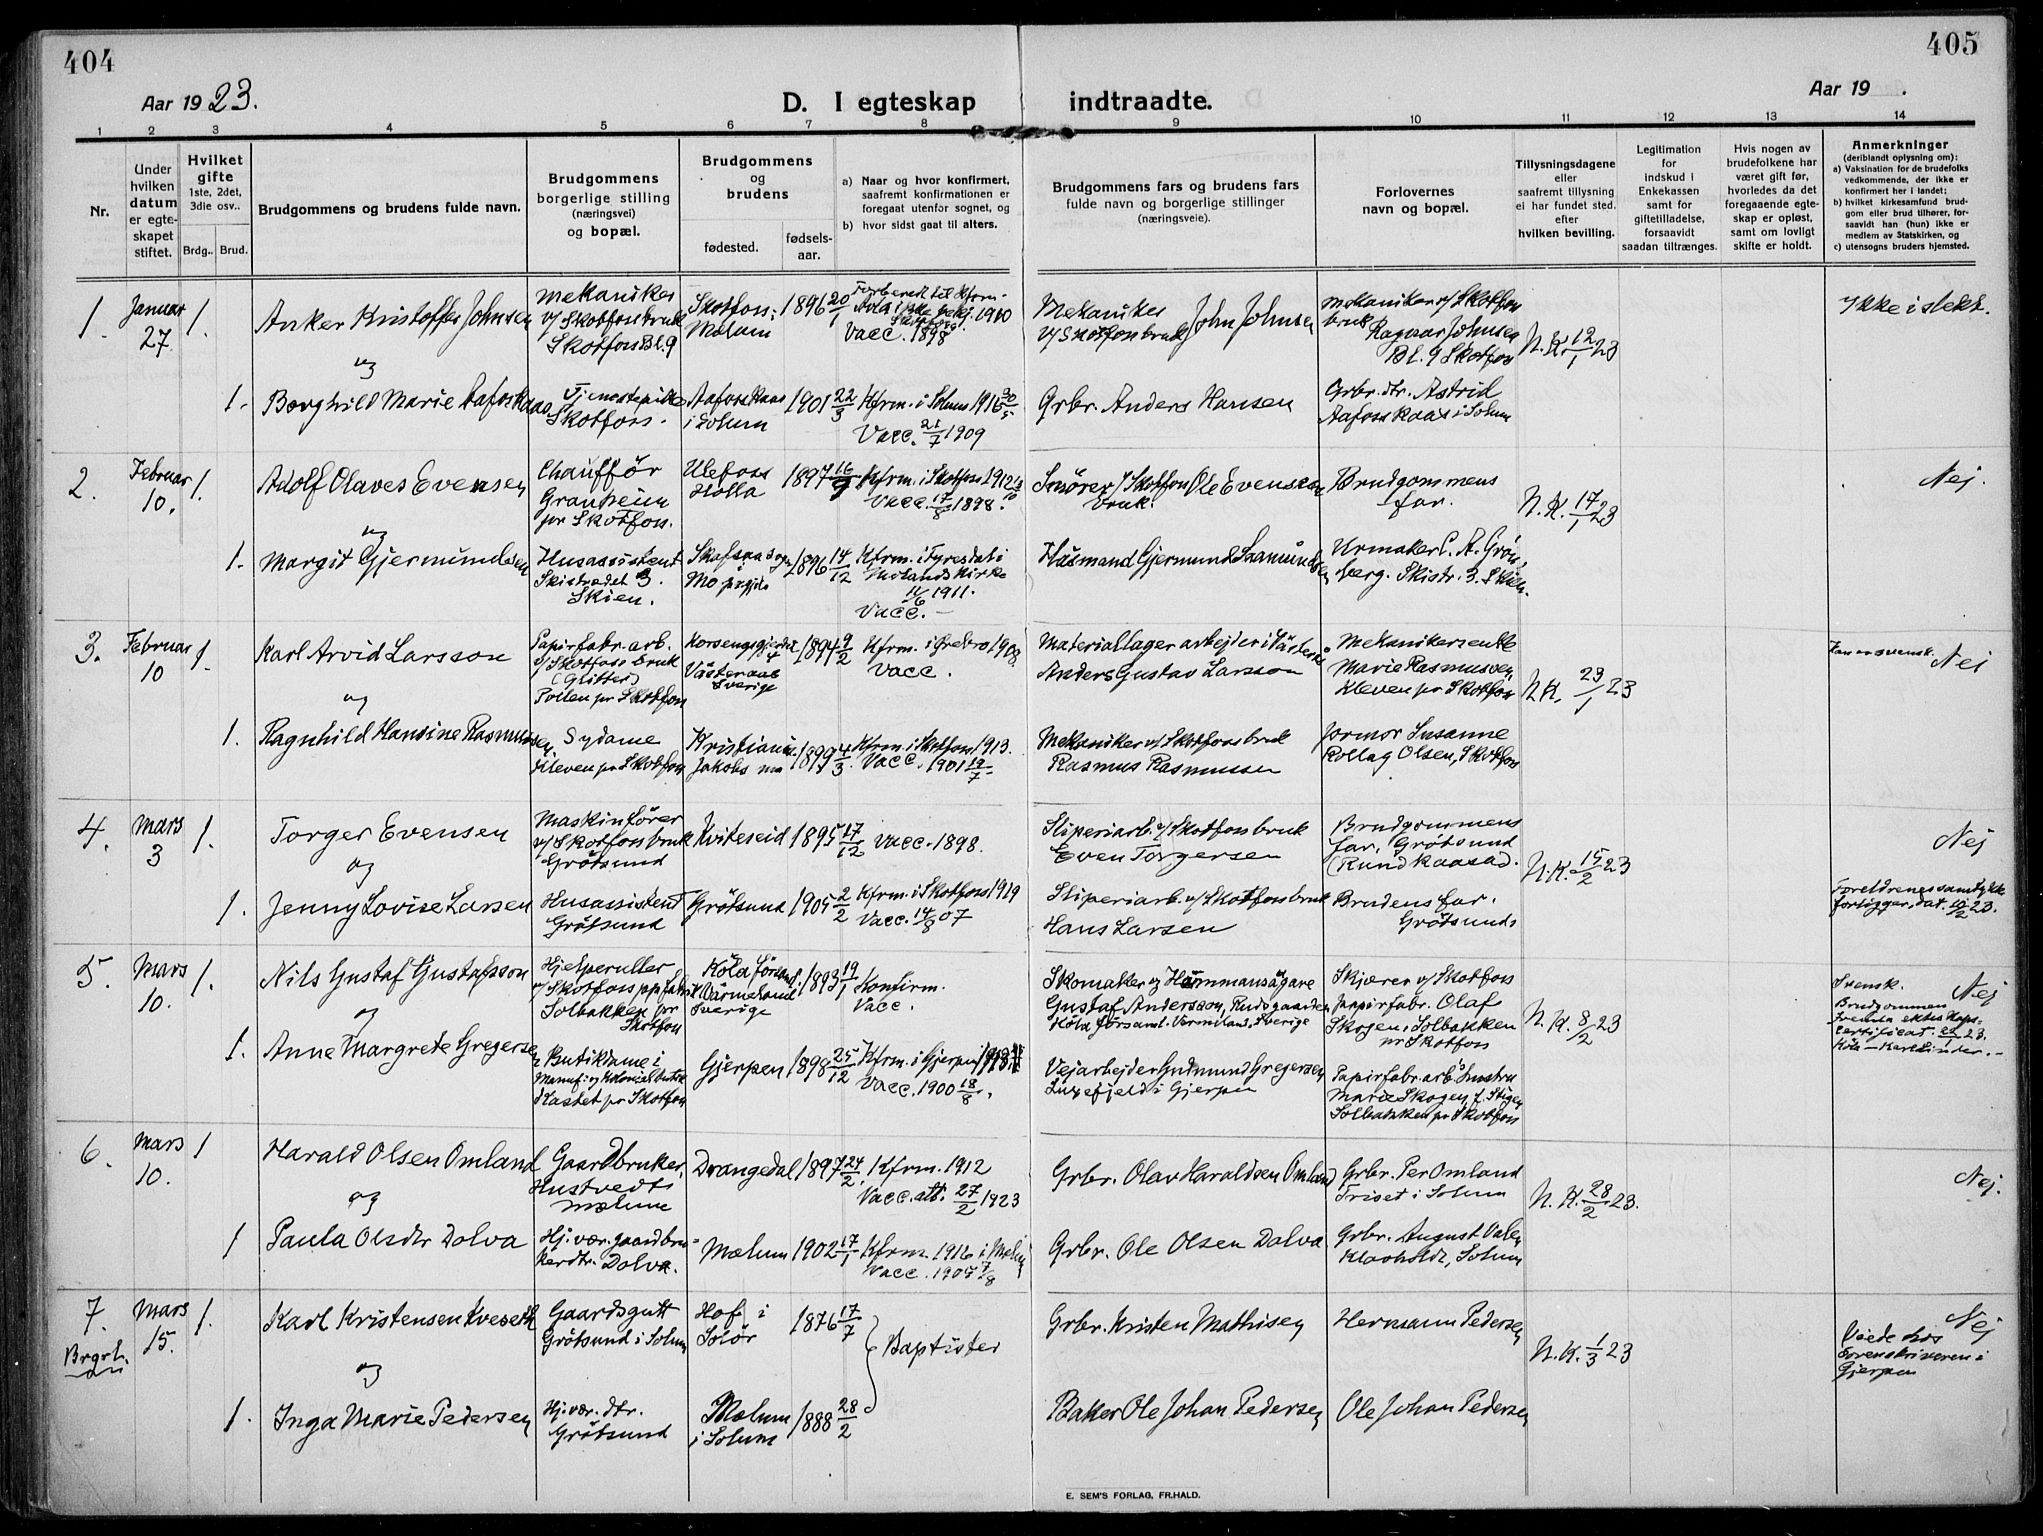 404
405
Aar 1923.
D. I egteskap indtraadte.
Aar 19 .
1 2 3 4 5 6 7 8 9 10 11 12 13 14
Nr.
Under hvilken datum er egte-skapet stiftet.
Hvilket gifte
1ste, 2det, 3die osv..
Brdg.. Brud.
Brudgommens og brudens fulde navn.
Brudgommens
borgerlige stilling
(næringsvei)
og bopæl.
Brudgommens
og
brudens
fødested.
fødsels-aar.
a) Naar og hvor konfirmert,
saafremt konfirmationen er
foregaat utenfor sognet, og
b) hvor sidst gaat til alters.
Brudgommens fars og brudens fars
fulde navn og borgerlige stillinger
(næringsveie).
Forlovernes
navn og bopæl.
Tillysningsdagene
eller
saafremt tillysning
ei har fundet sted,
efter
hvilken bevilling.
Legitimation
for
indskud i
Enkekassen
samt for
giftetilladelse,
forsaavidt
saadan tiltrænges.
Hvis nogen av
brudefolkene har
været gift før,
hvorledes da det
foregaaende egte-
skap er opløst,
samt om lovligt
skifte er holdt.
Anmerkninger
(deriblandt oplysning om):
a) Vaksination for de brudefolks
vedkommende, der ikke er
konfirmert her i landet;
b) hvilket kirkesamfund brud-
gom eller brud tilhører, for-
saavidt han (hun) ikke er
medlem av Statskirken, og
c) utensogns bruders hjemsted.
1. Januar 27. 1.
Anker Kristoffer Johnsen
og
Mekaniker
v/ Skotfoss bruk
Skotfoss Bl. 9
Skotfoss
Mælum
1896 20/1
Vacc. 1898
Mekaniker
v/ Skotfoss bruk John Johnsen
Mekaniker v/ Skotfoss
bruk
Ragnar Johnsen
Bl. 9 Skotfoss
N.K. 12/1 23
Ikke i slekt.
1. Borghild Marie Aafoss Kaas
Tjenestepike
Skotfoss.
Aafoss Kaas
i Solum
1901 22/3
Kfrm. i Solum 1916
Vacc. 21/7 1909
Grbr. Anders Hansen
Grbr. dtr. Astrid
Aafoss Kaas i Solum
2. Februar 10. 1.
Adolf Olaves Evensen
og
Chauffør
Granheim
pr Skotfoss.
Ulefoss
Holla
1897 16/9
Kfrm. i Skotfoss 1912
Vacc. 17/8 1898.
Smører v/ Skotfoss Ole Evensen
bruk.
Brudgommens
far.
N.K. 17/1 23
Nej.
1. Margit Gjermundsen
Husassistent
Skistredet 3.
Skien.
Skafsaa sogn
Mo prgjeld
1896 14/12
Kfrm. i Fyresdal i
Molands Kirke
11/6 1911.
Vacc. —
Husmand Gjermund Sæmundsen
Urmaker C. A. Grøn-
berg. Skistr. 3. Skien.
3. Februar 10 1.
Karl Arvid Larsson
og
Papirfabr. arb.
v/ Skotfoss bruk
(Glitter)
Poilen pr Skotfoss
Korsengsgjerdet
Västeraas
Sverige
1894 9/2
Kfrm. i Ørebro 1908
Vacc.
Materiallager arbejder i Västeraas
Anders Gustav Larsson
Mekanikerenke
Marie Rasmussen,
Kleven pr Skotfoss
N.K. 23/1 23
Han er svensk. Nej
1. Ragnhild Hansine Rasmussen
Sydame
Kleven pr Skotfoss
Kristiania
Jakobs mn
1899 4/3
Kfrm. i Skotfoss 1913.
Vacc. 1901 19/7
Mekaniker v/ Skotfoss bruk
Rasmus Rasmussen
Formor Susanne
Rollag Olsen, Skotfoss
4. Mars 3 1.
Torger Evensen
og
Maskinfører
v/ Skotfoss bruk
Grøtsund
Kviteseid
1895 17/12
Vacc. 1898.
Sliperiarb. v/ Skotfoss bruk
Even Torgersen
Brudgommens
far, Grøtsund
(Rundkaasa).
N.K. 15/2 23
Nej
1. Jenny Lovise Larsen
Husassistent
Grøtsund
Grøtsund
1905 2/2
Kfrm. i Skotfoss 1919
Vacc. 14/8 07
Sliperiarb. v/ Skotfoss bruk
Hans Larsen
Brudens far.
Grøtsund
Foreldrenes samtykke
forligger, dat. 10/2 23.
5. Mars 10. 1.
Nils Gustaf Gustafsson
og
Hjelperuller
v/ Skotfoss papirfabrik
Solbakken pr
Skotfoss
Köla församl.
i Värmeland
Sverige
1893 19/1
Konfirm.
Vacc.
Skomaker og Hemmansägare
Gustaf Andersson, Rudsgaarden
Köla församl. Vermland, Sverige
Skjærer v/ Skotfoss
papirfabr. Olaf
Skogen, Solbakken
pr Skotfoss
N.K. 8/2 23
Svensk. Nej
Brudgommen
1. Anne Margrete Gregersen
Butikdame i
Manuf.: og Kolonial butik
Kastet pr Skotfoss
Gjerpen
1898 25/12
Kfrm. i Gjerpen 1913
Vacc. 1900 18/8.
Vejarbejder Gudmund Gregersen
Luxefjeld i Gjerpen
Papirfabr. arb. hustru
Marie Skogen, f. Stigen
Solbakken pr Skotfoss
6. Mars 10. 1
Harald Olsen Omland
og
Gaardbruker,
Hustvedt
Mælum
Drangedal
1897 24/2
Kfrm. 1912
Vacc. att. 27/2 1923
Grbr. Olav Haraldsen Omland
Grbr. Per Omland
Triset i Solum
N.K. 28/2 23.
Nej.
1 Paula Olsdtr Dolva
Hj: vær. gaardbru-
kerdtr. Dolva.
Mælum
1902 17/1
Kfrm. 1916 i Mælum
Vacc. 1907 7/8
Grbr. Ole Olsen Dolva
Grbr. August Valen
Klovholt, Solum
7. Brgrl. Mars 15. 1.
Karl Kristensen Kveseth
og
Gaardsgutt
Grøtsund i Solum
Hof i
Solør
1876 17/7
Baptister
Grbr. Kristen Mathisen
Hermann Pedersen
N.K. 1/3 23
Nej
Viede hos
Sorenskriveren i
Gjerpen
1. Inga Marie Pedersen
Hj: vær. dtr.
Grøtsund
Mælum
i Solum
1888 28/2
Baker Ole Johan Pedersen
Ole Johan Pedersen
E. SEM'S FORLAG, FR.HALD.